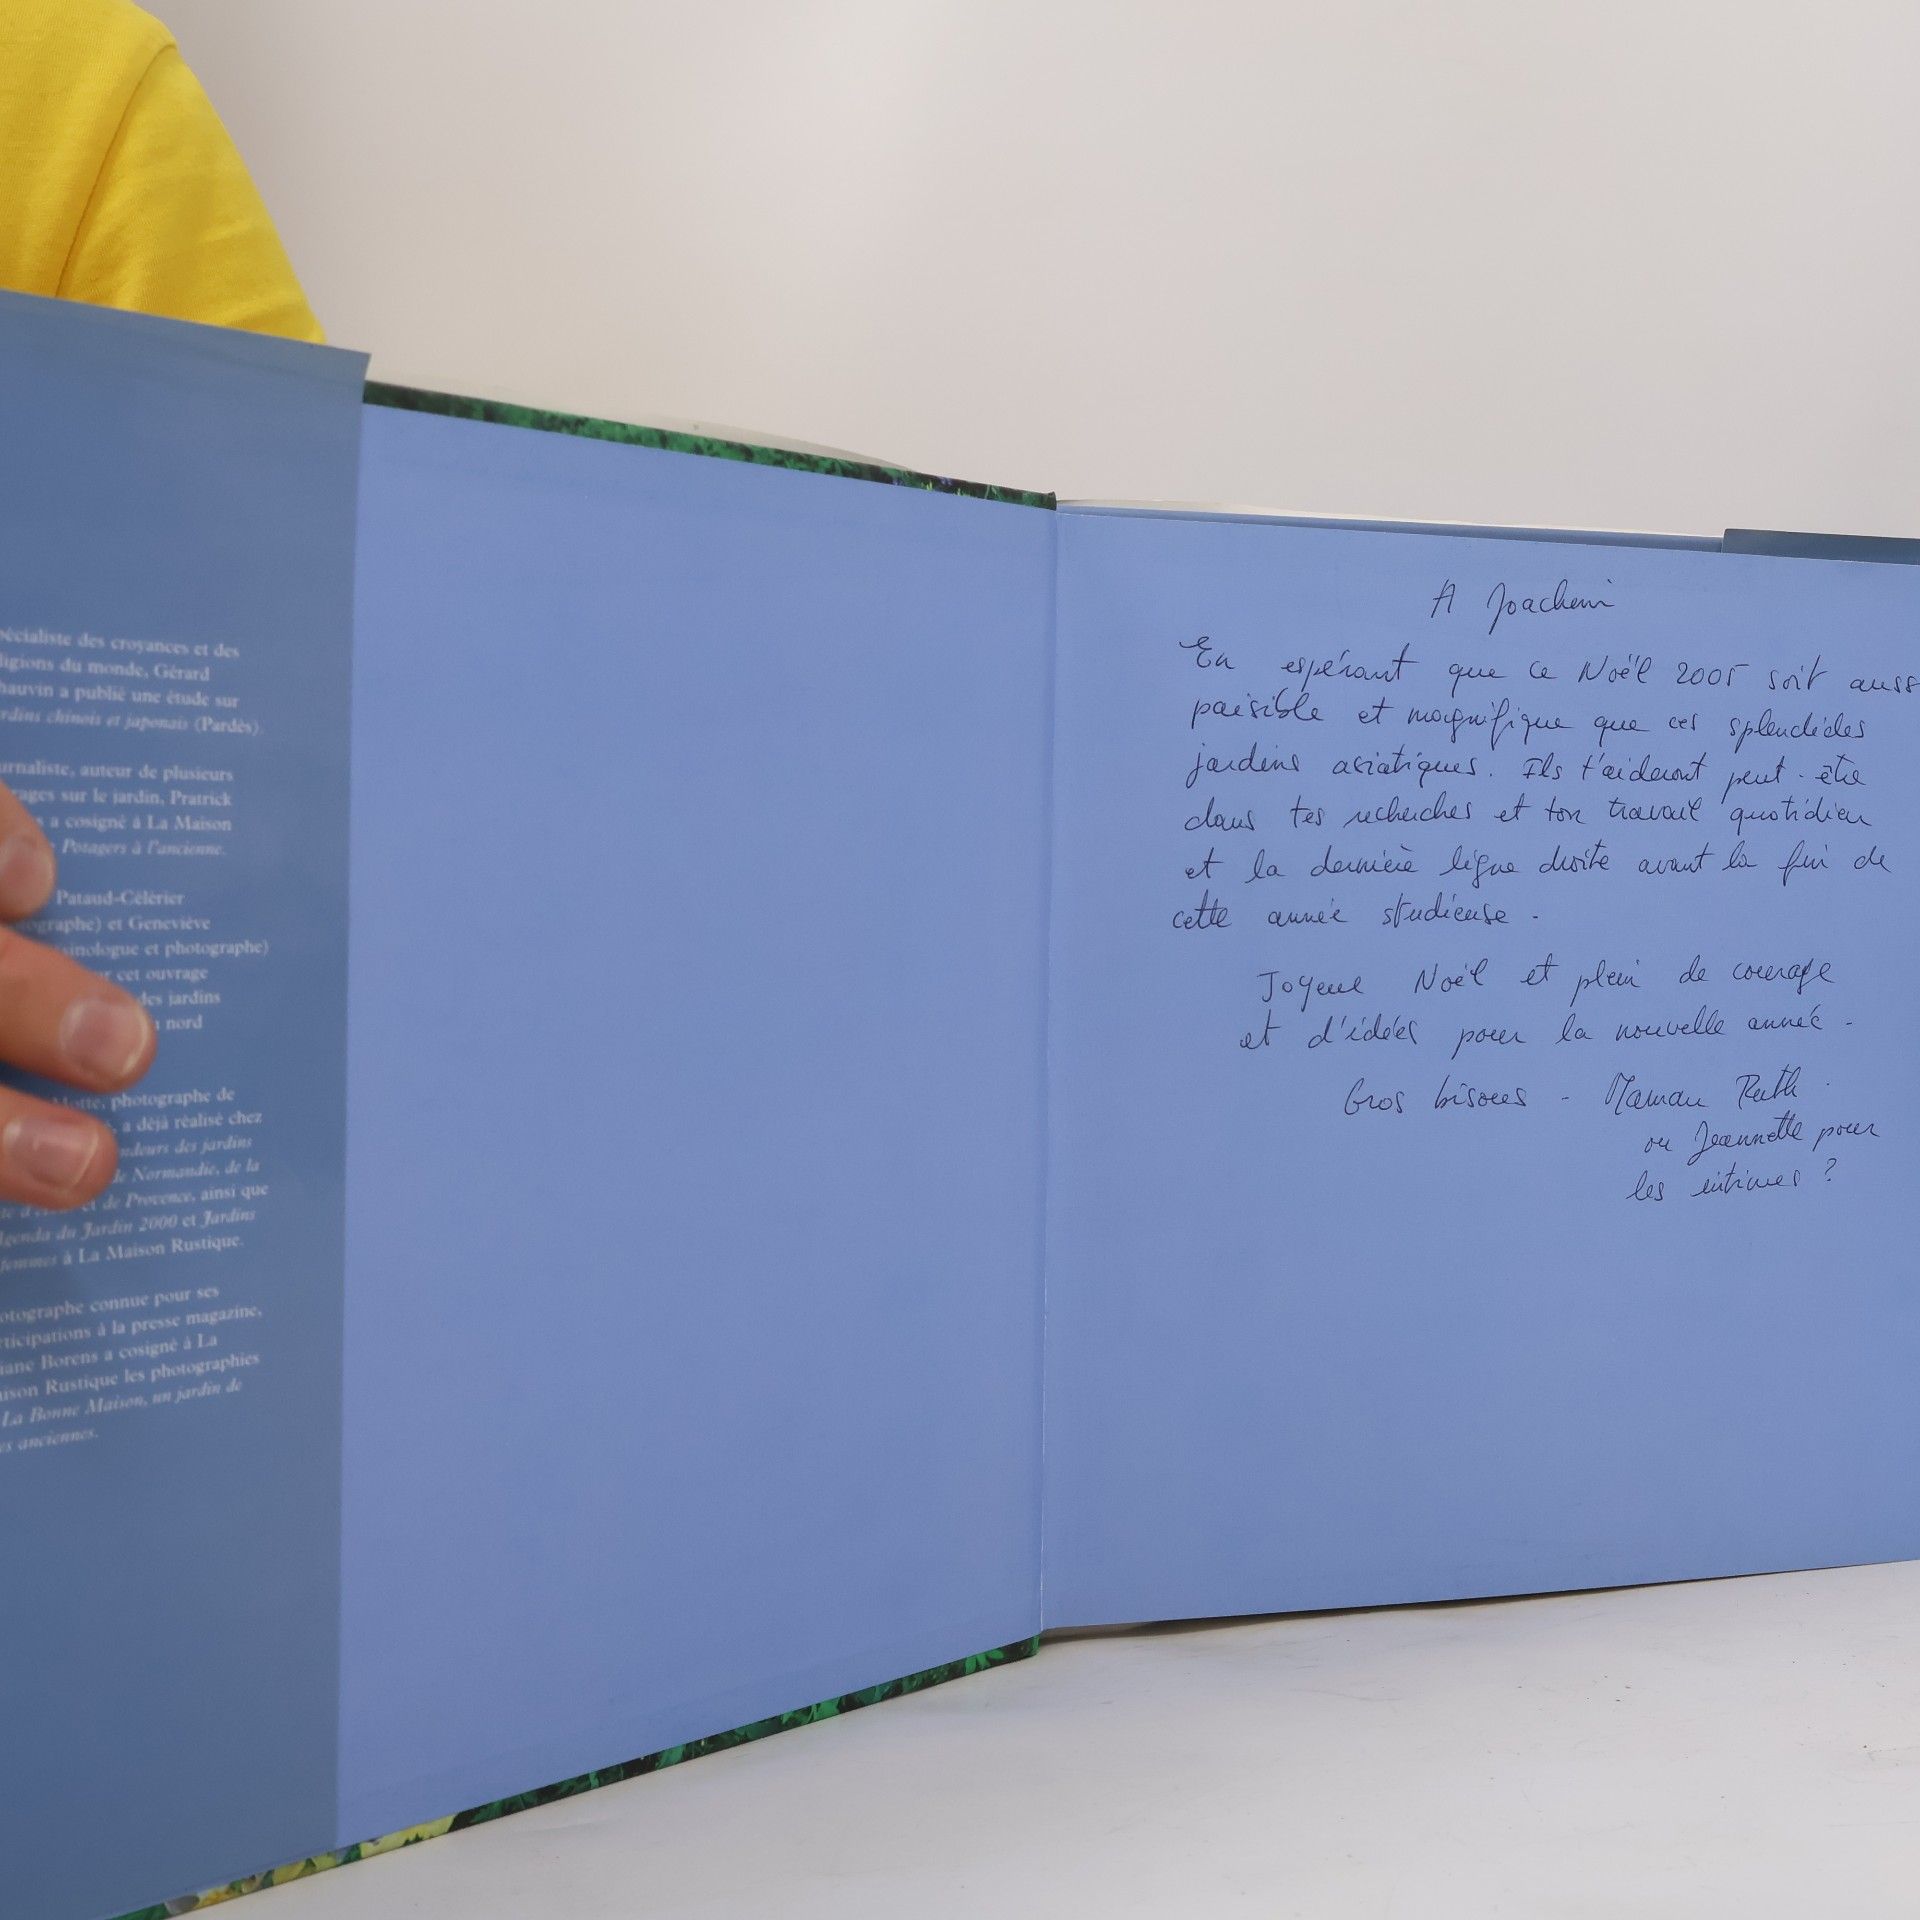 écialiste des croyances et des
ligions du monde, Gérard
hauvin a publié une étude sur
rdins chinois et japonais (Pardès).
urnaliste, auteur de plusieurs
rages sur le jardin, Pratrick
s a cosigné à La Maison
Potagers à l'ancienne.
Pataud-Célérier
ographe) et Geneviève
sinologue et photographe)
ur cet ouvrage
des jardins
nord
Motte, photographe de
, a déjà réalisé chez
ndeurs des jardins
de Normandie, de la
et de Provence, ainsi que
genda du Jardin 2000 et Jardins
femmes à La Maison Rustique.
otographe connue pour ses
rticipations à la presse magazine,
iane Borens a cosigné à La
aison Rustique les photographies
La Bonne Maison, un jardin de
es anciennes.
A Joachim
En espérant que ce Noël 2005 soit auss
paisible et magnifique que ces splendides
jardins asiatiques. Ils t'aideront peut-être
dans tes recherches et ton travail quotidien
et la dernière ligne droite avant la fin de
cette année studieuse.
Joyeux Noël et plein de courage
et d'idées pour la nouvelle année.
Gros bisous - Maman Ruth.
ou Jeannette pour
les intimes ?